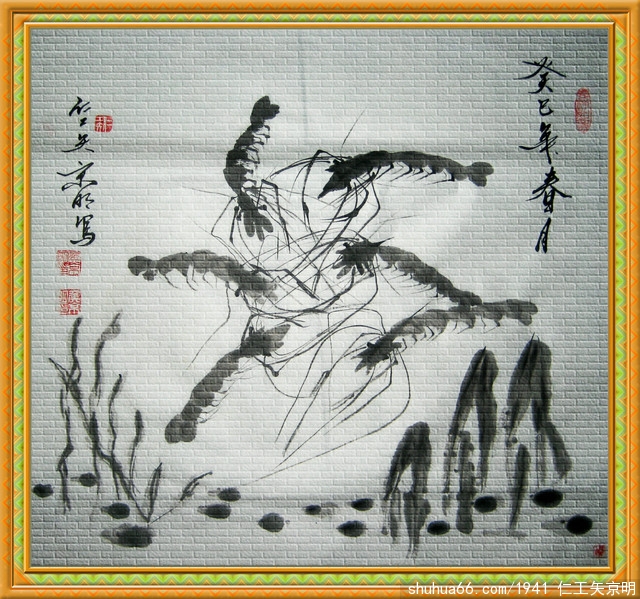 癸巳年春月
仁工矢京明写
shuhua66.com/1941 仁工矢京明